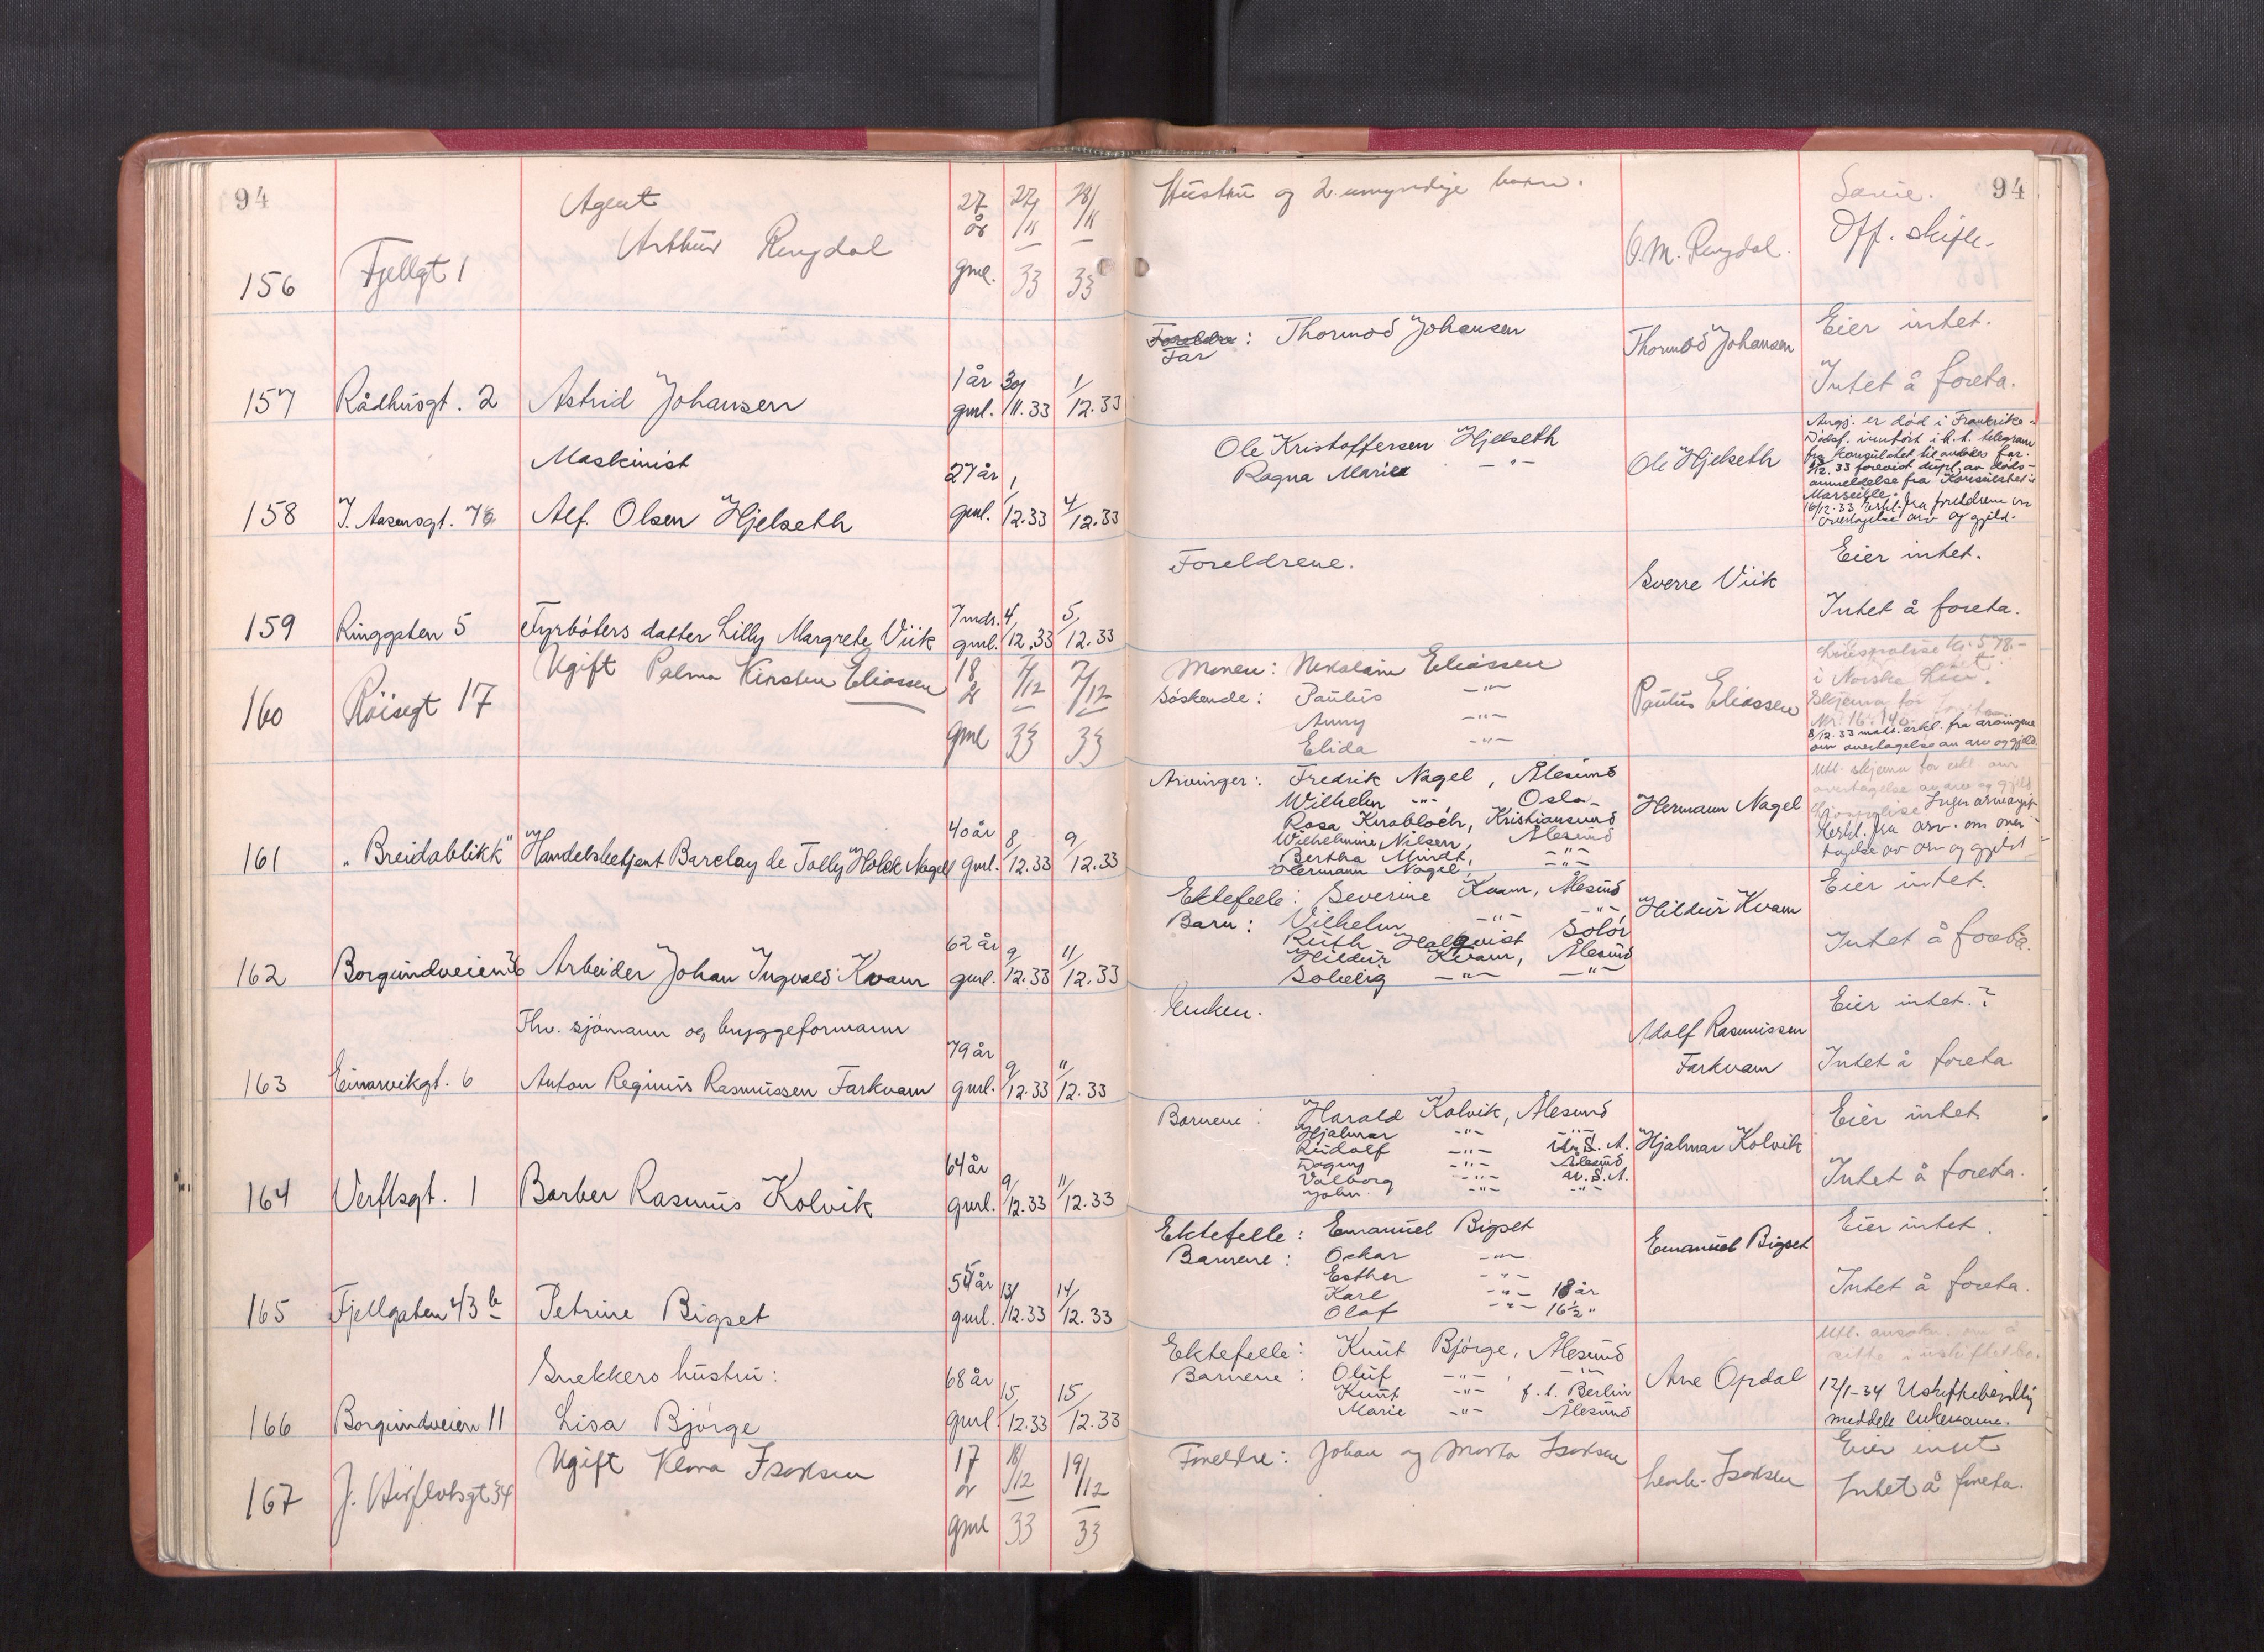 94
94
156 Fjellgt 1
Agent
Arthur Ringdal
27 år gml. 27/11 33 28/11 33
Hustru og 2 umyndige barn.
O. M. Ringdal.
Off. skifte.
157 Rådhusgt. 2 Astrid Johansen
1 år gml. 30/11.33 1/12.33
Foreldre : Thormod Johansen
Far
Thormod Johansen
Eier intet.
Intet å foreta.
158 I. Aasensgt. 7b
Maskinist
Alf Olsen Hjelseth
27 år gml. 1/12.33 4/12.33
Ole Kristoffersen Hjelseth
Ragna Marie -"-
Ole Hjelseth
Angj. er død i Frankrike.
Dødsf. innført i h. t. telegram
fra konsulatet til avdødes far.
/12.33 forevist dupl. av døds-
anmeldelse fra Konsulatet i
Marseille.
16/12.33 erkl. fra foreldrene om
overtagelse arv og gjeld.
159 Ringgaten 5 Fyrbøters datter Lilly Margrete Viik
7 mds. gml. 4/12.33 5/12.33
Foreldrene.
Sverre Viik
Eier intet.
Intet å foreta.
160 Röisegt 17 Ugift Palma Kirsten Eliassen
18 år gml 7/12 33 7/12 33
Moren: Nikolaine Eliassen
Søskende: Paulus -"-
Anny -"-
Elida -"-
Paulus Eliassen
Livspolise kr. 578.-
i Norske Liv.
Skjema for
Nr. 16.140.
8/12.33 mott. erkl. fra arvingene
om overtagelse av arv og gjeld.
161 "Breidablikk" Handelsbetjent Barclay de Tolly Holck Nagel
40 år gml. 8/12.33 9/12.33
Arvinger: Fredrik Nagel, Ålesund
Wilhelm -"-, Oslo
Rosa Knobloch, Kristiansund
Wilhelmine Nilsen, Ålesund
Bertha Mindt, -"-
Hermann Nagel, -"-
Hermann Nagel
Utl. skjema for erkl. om
overtagelse av arv og gjeld
erkl. fra arv. om over-
tagelse av arv og gjeld
162 Borgundveien 36 Arbeider Johan Ingvald Kvam
62 år gml. 9/12.33 11/12.33
Ektefelle: Severine Kvam, Ålesund
Barn: Vilhelm -"- -"-
Ruth Halqvist Solör
Hildur Kvam, Ålesund
Solveig -"- -"-
Hildur Kvam
Eier intet.
Intet å foreta.
163 Einarvikgt. 6
Fhv. sjømann og bryggeformann
Anton Reginius Rasmussen Farkvam
79 år gml. 9/12.33 11/12.33
Enken.
Adolf Rasmussen
Farkvam
Eier intet.?
Intet å foreta
164 Verftsgt. 1 Barber Rasmus Kolvik
64 år gml. 9/12.33 11/12.33
Barnene: Harald Kolvik, Ålesund
Hjalmar -"- -"-
Rudolf -"- U.S.A.
Dagny -"- Ålesund
Valborg -"- U.S.A.
John -"- -"-
Hjalmar Kolvik
Eier intet
Intet å foreta.
165 Fjellgaten 43 b Petrine Bigset
54 år gml. 13/12.33 14/12.33
Ektefelle: Emanuel Bigset
Barnene: Oskar -"-
Esther -"-
Karl -"- 18 år
Olaf -"- 16½ "
Emanuel Bigset
Eier intet.
Intet å foreta.
166 Borgundveien 11
Snekkers hustru:
Lisa Bjørge
68 år gml. 15/12.33 15/12.33
Ektefelle: Knut Bjørge, Ålesund
Barnene: Oluf -"- -"-
Knut -"- f. t. Berlin
Marie -"- Ålesund
Arne Opdal
Utl. ansøkn. om å
sitte i uskiftet bo.
12/1-34 Uskiftebevilling
meddelt enkemannen.
167 Ugift Klara Isaksen
17 år gml 18/12 33 19/12 33
Foreldre: Johan og Marta Isaksen
Isaksen
Eier intet
Intet å foreta.